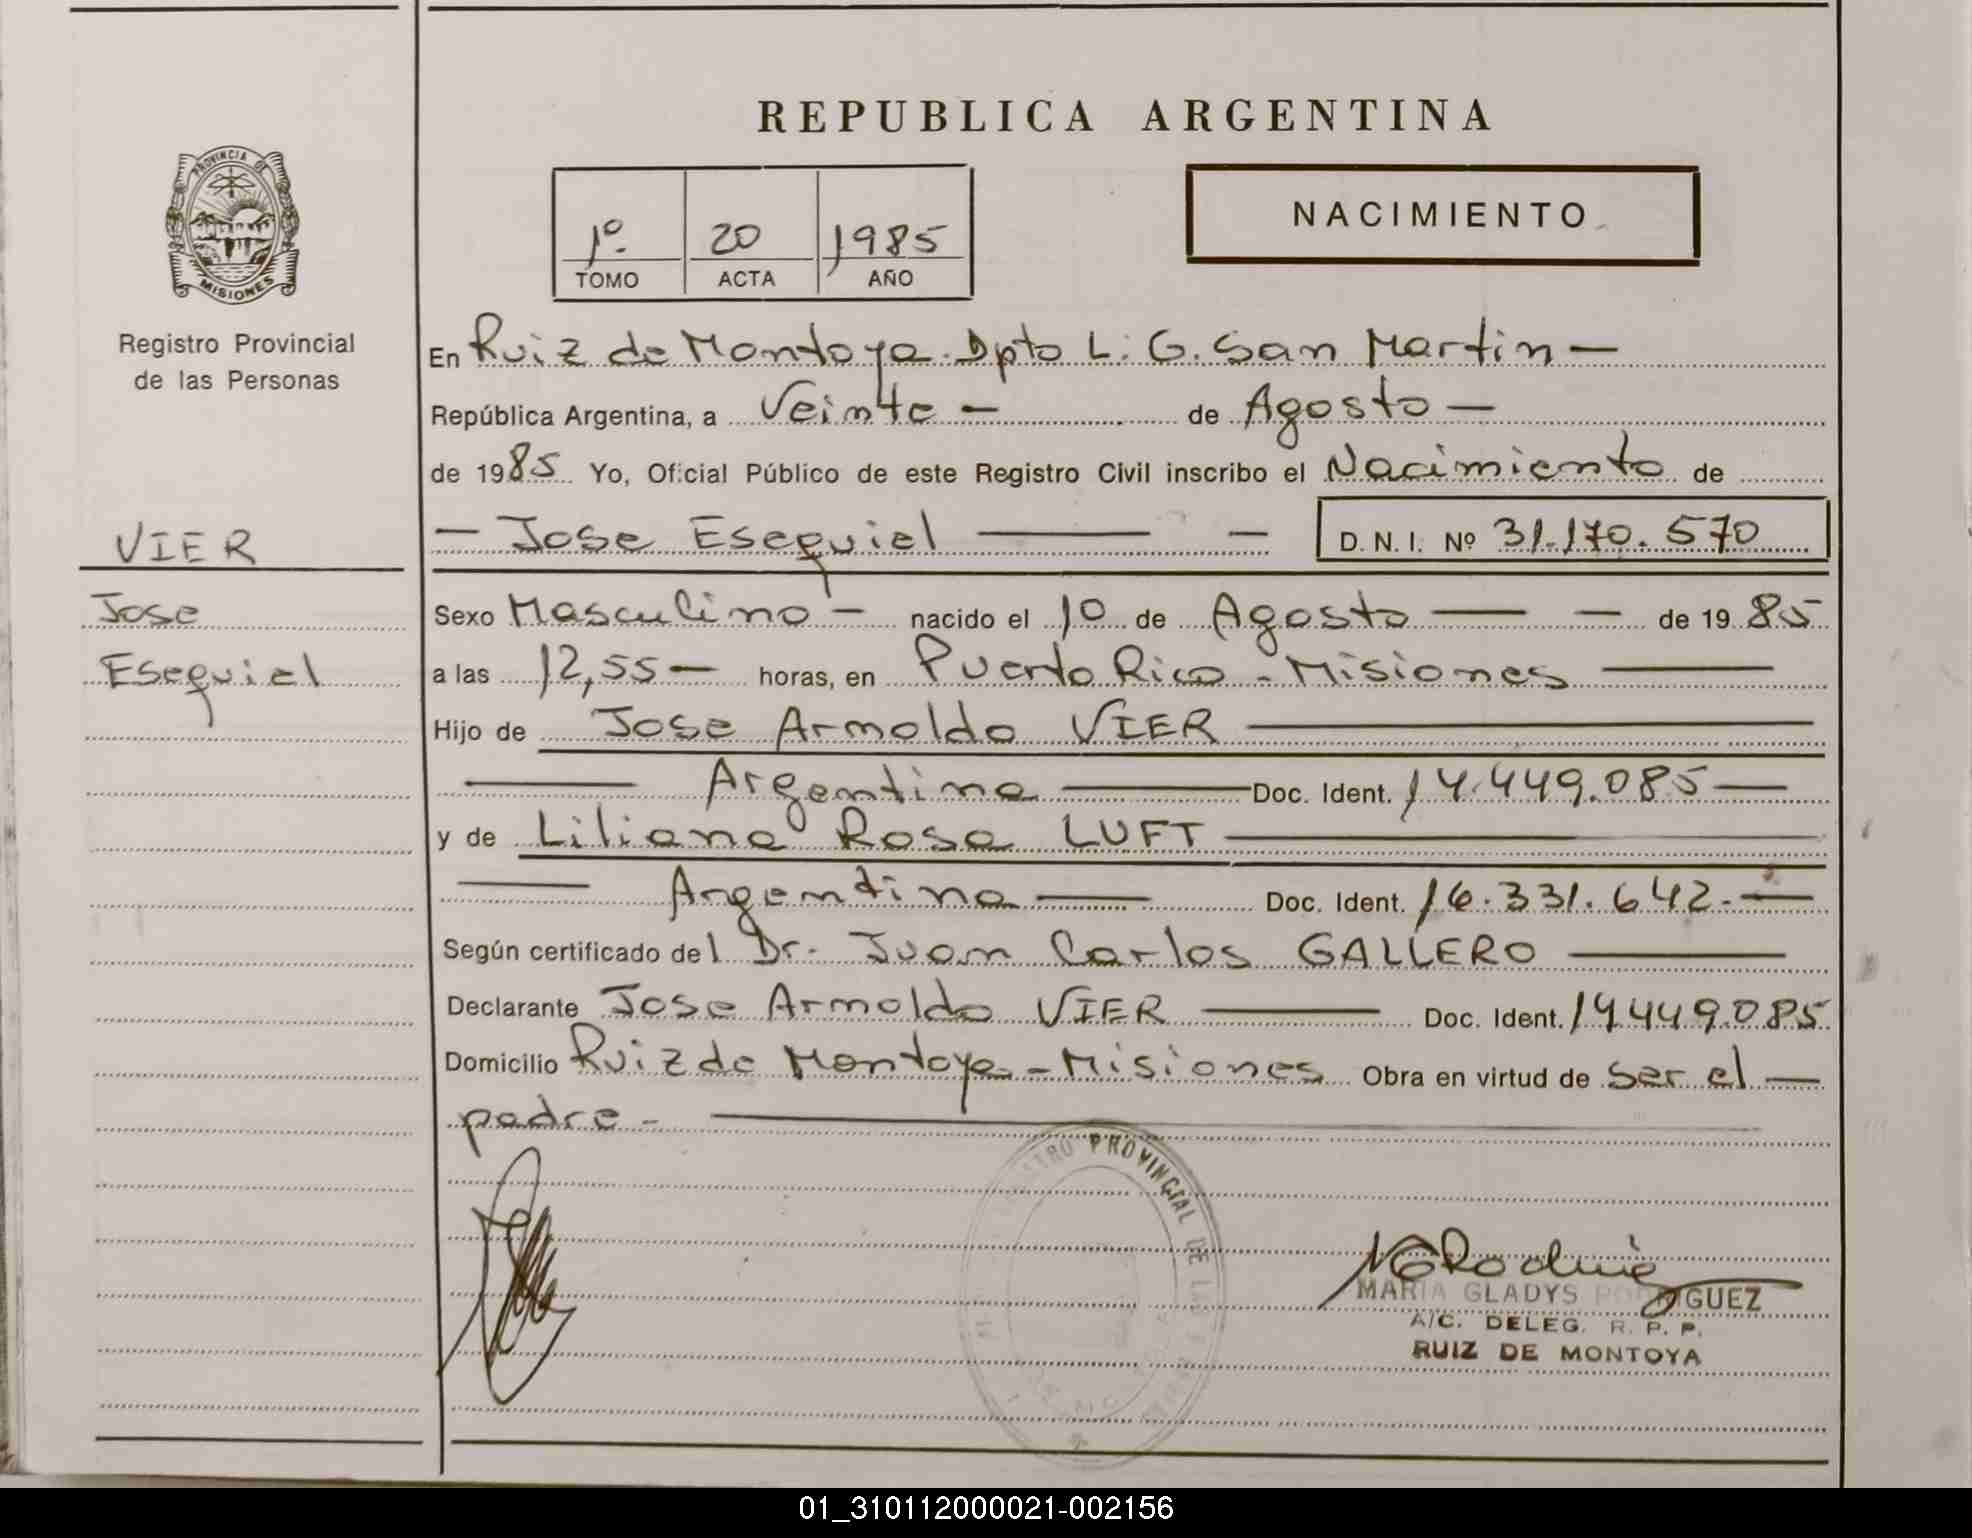 REPUBLICA ARGENTINA
PROVINCIA DE
MISIONES
Registro Provincial
de las Personas
1º 20 1985
TOMO ACTA AÑO
NACIMIENTO
En Ruiz de Montoya. Dpto L. G. San Martin —
República Argentina, a Veinte — de Agosto —
de 1985 Yo, Oficial Público de este Registro Civil inscribo el Nacimiento de
— Jose Esequiel — — D. N. I. Nº 31.170.570
VIER
Jose
Esequiel
Sexo Masculino — nacido el 10 de Agosto — — de 1985
a las 12,55 — horas, en Puerto Rico - Misiones —
Hijo de Jose Arnoldo VIER —
— Argentino — Doc. Ident. 14.449.085 —
y de Liliana Rosa LUFT —
— Argentina — Doc. Ident. 16.331.642. —
Según certificado del Dr. Juan Carlos GALLERO —
Declarante Jose Arnoldo VIER — Doc. Ident. 14.449.085
Domicilio Ruiz de Montoya - Misiones Obra en virtud de ser el —
padre - —
PROVINCIAL DE LAS
MARIA GLADYS RODRIGUEZ
A/C. DELEG. R. P. P.
RUIZ DE MONTOYA
01_310112000021-002156